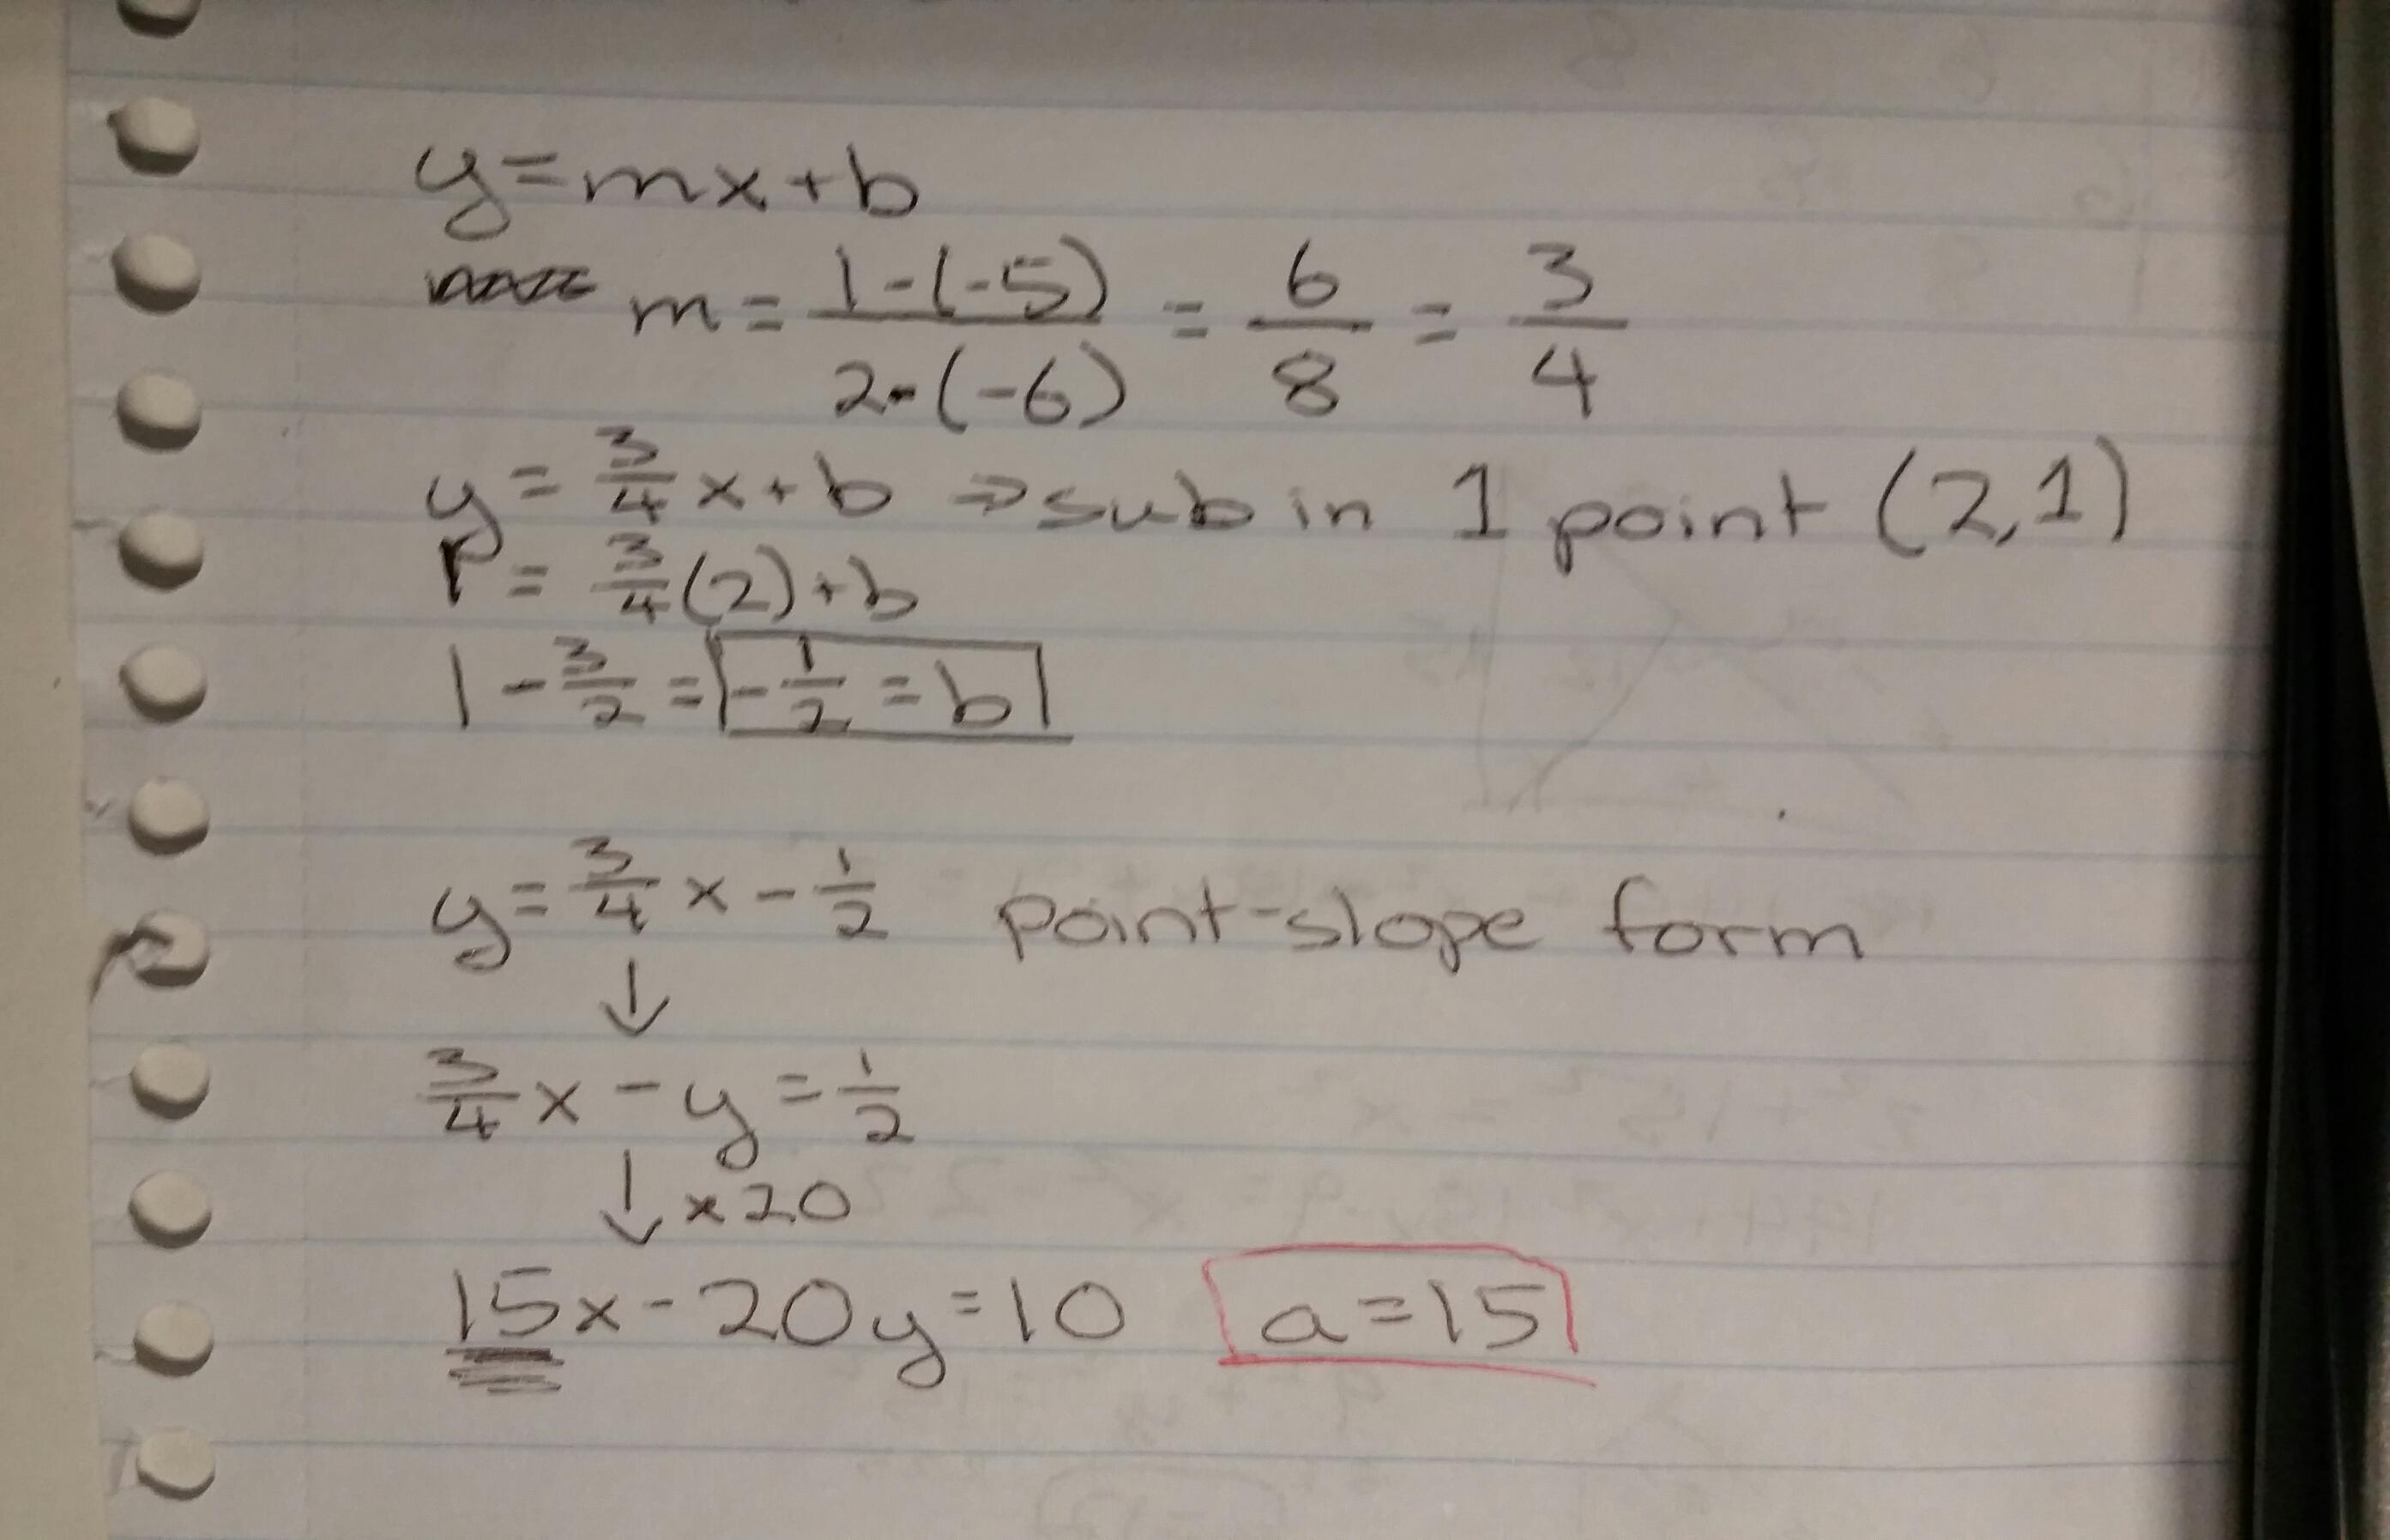 y=mx+b
m = 1-(-5) / 2-(-6) = 6/8 = 3/4
y = 3/4 x + b ⇒ sub in 1 point (2,1)
1 = 3/4 (2) + b
1 - 3/2 = -1/2 = b
y = 3/4 x - 1/2 point-slope form
↓
3/4 x - y = 1/2
↓ x20
15x - 20y = 10 a=15